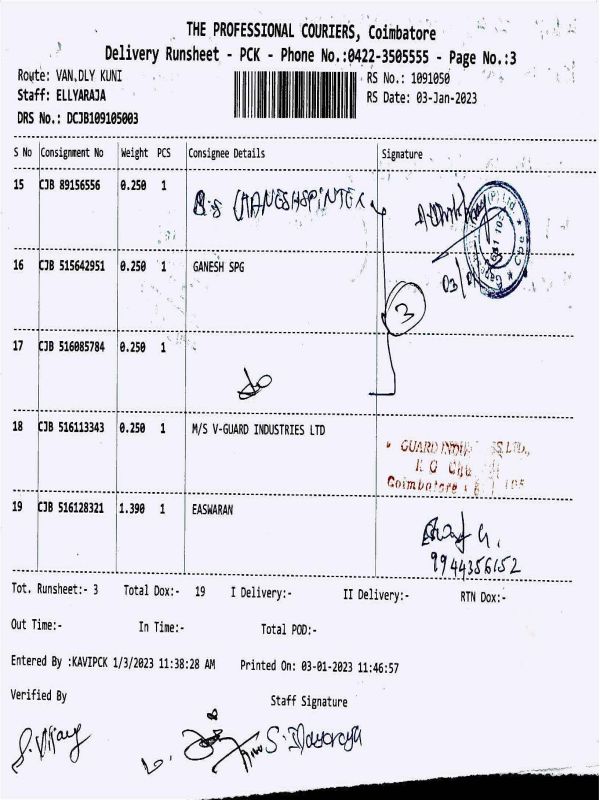 THE PROFESSIONAL COURIERS, Coimbatore
Delivery Runsheet - PCK - Phone No.:0422-3505555 - Page No.:3
Route: VAN,DLY KUNI RS No.: 1091050
Staff: ELLYARAJA RS Date: 03-Jan-2023
DRS No.: DCJB109105003
S No Consignment No Weight PCS Consignee Details Signature
15 CJB 89156556 0.250 1
16 CJB 515642951 0.250 1 GANESH SPG
03/
3
17 CJB 516085784 0.250 1 .
18 CJB 516113343 0.250 1 M/S V-GUARD INDUSTRIES LTD
GUARD LTD.,
K G
Coimbatore
19 CJB 516128321 1.390 1 EASWARAN
9944356152
Tot. Runsheet:- 3 Total Dox:- 19 I Delivery:- II Delivery:- RTN Dox:-
Out Time:- In Time:- Total POD:-
Entered By :KAVIPCK 1/3/2023 11:38:28 AM Printed On: 03-01-2023 11:46:57
Verified By Staff Signature
S. Vijay